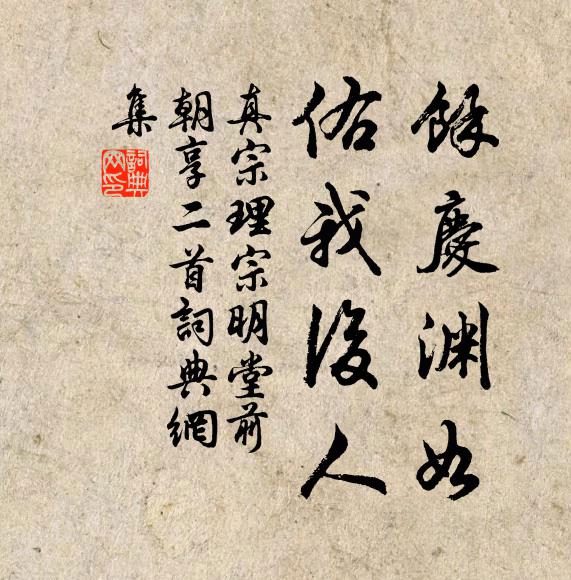 餘慶渊如
佑我後人
真宗理宗明堂前
朝享二首詞典網
集
詞典
网印